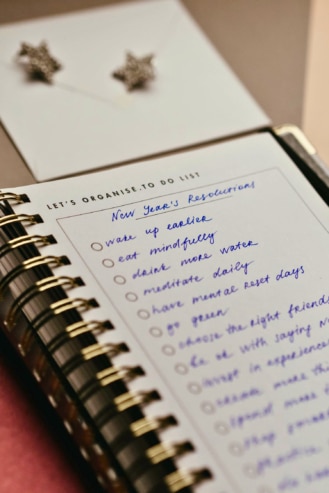 LET'S ORGANISE.TO DO LIST
New Year's Resolutions
wake up earlier
eat mindfully
drink more water
meditate daily
have mental reset days
go green
choose the right friends
be ok with saying No
invest in experiences
create more
spend more
shop